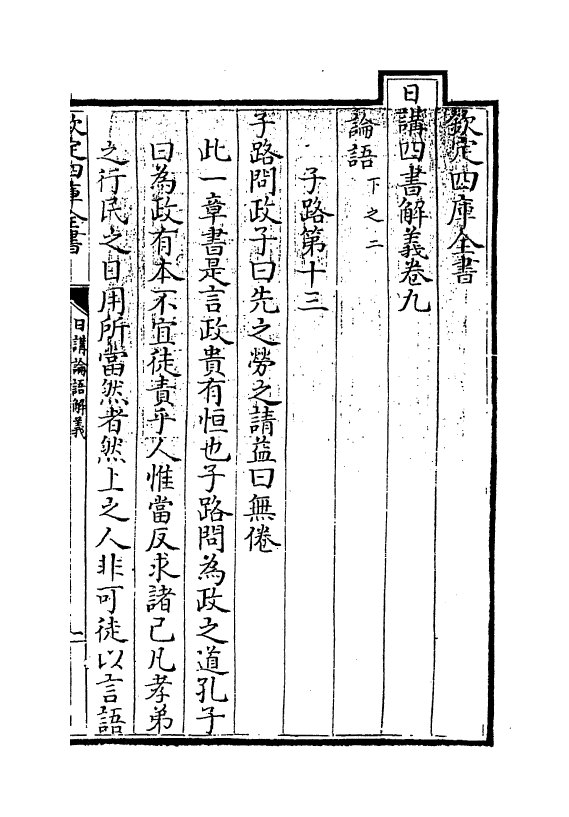 欽定四庫全書
日講四書解義卷九
論語下之二
子路第十三
子路問政子曰先之勞之請益曰無倦
此一章書是言政貴有恒也子路問為政之道孔子
曰為政有本不宜徒責乎人惟當反求諸己凡孝弟
之行民之日用所當然者然上之人非可徒以言語
欽定四庫全書
日講論語解義